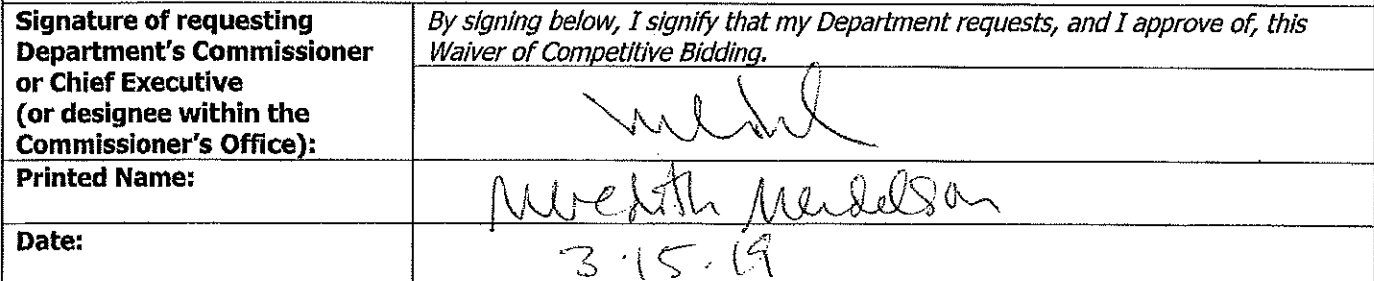 Signature of requesting
Department's Commissioner
or Chief Executive
(or designee within the
Commissioner's Office):
By signing below, I signify that my Department requests, and I approve of, this
Waiver of Competitive Bidding.
Printed Name:
Meredith Mendelson
Date:
3.15.19